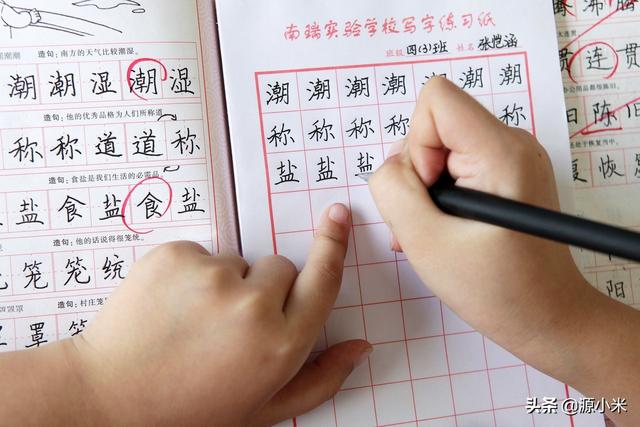 造句：南方的天气比较潮湿。
潮潮湿潮湿
造句：他的优秀品格为人们所称道
称称道道称
造句：食盐是我们生活的必需品。
盐食盐食盐
造句：他的话说得很笼统。
笼笼统
造句：村庄笼
罩罩笼
南瑞实验学校写字练习纸
班级 四(3)班 姓名 张恺涵
潮潮潮潮潮潮潮
称称称称 称
盐盐盐
连
陈旧
复恢
阳
头条 @源小米